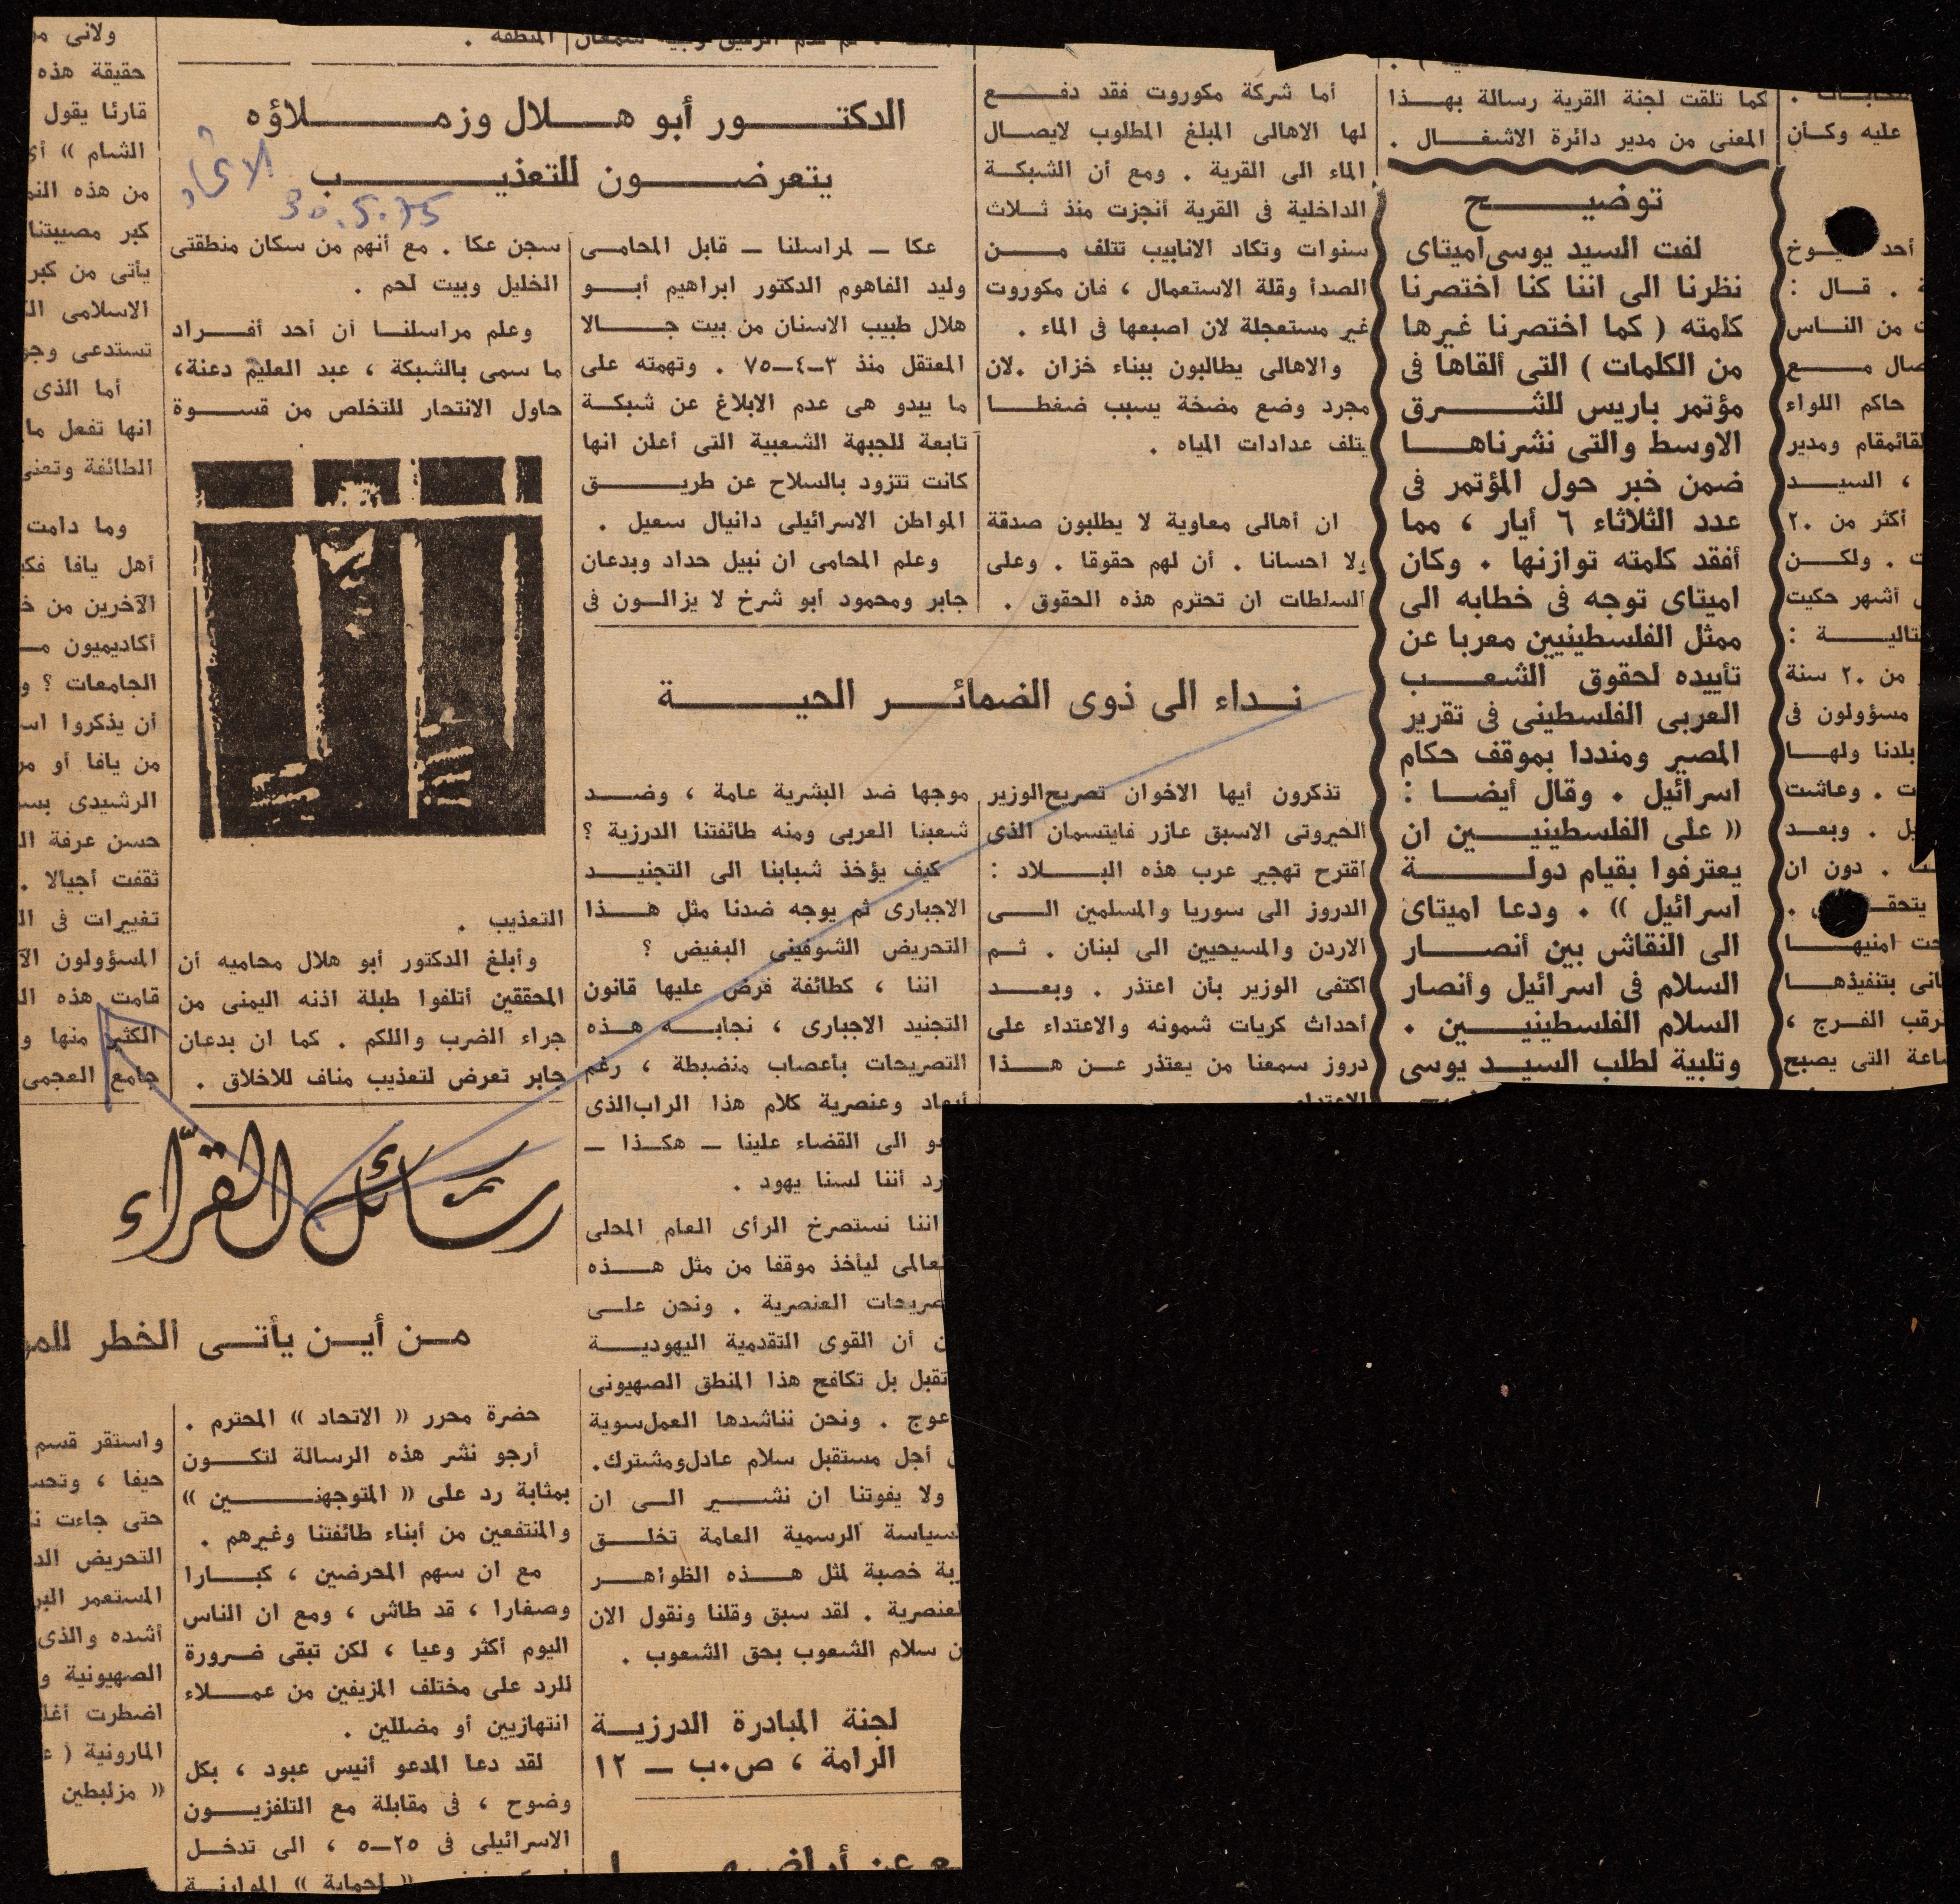 عليه وكأن
أحد
. قال :
من الناس
مع
حاكم اللواء
ومدير
، السيد
أكثر من ٢٠
. ولكن
أشهر حكيت
:
من ٢٠ سنة
مسؤولون فى
بلدنا ولها
. وعاشت
. وبعد
. دون ان
امنيها
بتنفيذها
الفرج ،
التى يصبح
كما تلقت لجنة القرية رسالة بهذا
المعنى من مدير دائرة الاشغال .
توضيح
لفت السيد يوسى اميتاى
نظرنا الى اننا كنا اختصرنا
كلمته ( كما اختصرنا غيرها
من الكلمات ) التى ألقاها فى
مؤتمر باريس للشرق
الاوسط والتى نشرناها
ضمن خبر حول المؤتمر فى
عدد الثلاثاء ٦ أيار ، مما
أفقد كلمته توازنها . وكان
اميتاى توجه فى خطابه الى
ممثل الفلسطينيين معربا عن
تأييده لحقوق الشعب
العربى الفلسطينى فى تقرير
المصير ومنددا بموقف حكام
اسرائيل . وقال أيضا :
(( على الفلسطينيين ان
يعترفوا بقيام دولة
اسرائيل )) . ودعا اميتاى
الى النقاش بين أنصار
السلام فى اسرائيل وأنصار
السلام الفلسطينيين .
وتلبية لطلب السيد يوسى
أما شركة مكوروت فقد دفع
لها الاهالى المبلغ المطلوب لايصال
الماء الى القرية . ومع أن الشبكة
الداخلية فى القرية أنجزت منذ ثلاث
سنوات وتكاد الانابيب تتلف من
الصدأ وقلة الاستعمال ، فان مكوروت
غير مستعجلة لان اصبعها فى الماء .
والاهالى يطالبون ببناء خزان .لان
مجرد وضع مضخة يسبب ضغطا
يتلف عدادات المياه .
ان أهالى معاوية لا يطلبون صدقة
ولا احسانا . أن لهم حقوقا . وعلى
السلطات ان تحترم هذه الحقوق .
المنطقة .
الدكتور أبو هلال وزملاؤه
يتعرضون للتعذيب
الاتحاد
30.5.75
عكا ــ لمراسلنا ــ قابل المحامى
وليد الفاهوم الدكتور ابراهيم أبو
هلال طبيب الاسنان من بيت جالا
المعتقل منذ ٣-٤-٧٥ . وتهمته على
ما يبدو هى عدم الابلاغ عن شبكة
تابعة للجبهة الشعبية التى أعلن انها
كانت تتزود بالسلاح عن طريق
المواطن الاسرائيلى دانيال سعيل .
وعلم المحامى ان نبيل حداد وبدعان
جابر ومحمود أبو شرخ لا يزالون فى
سجن عكا . مع أنهم من سكان منطقتى
الخليل وبيت لحم .
وعلم مراسلنا أن أحد أفراد
ما سمى بالشبكة ، عبد العليم دعنة،
حاول الانتحار للتخلص من قسوة
التعذيب .
وأبلغ الدكتور أبو هلال محاميه أن
المحققين أتلفوا طبلة اذنه اليمنى من
جراء الضرب واللكم . كما ان بدعان
جابر تعرض لتعذيب مناف للاخلاق .
نداء الى ذوى الضمائر الحية
تذكرون أيها الاخوان تصريح الوزير
الحيروتى الاسبق عازر فايتسمان الذى
اقترح تهجير عرب هذه البلاد :
الدروز الى سوريا والمسلمين الى
الاردن والمسيحيين الى لبنان . ثم
اكتفى الوزير بأن اعتذر . وبعد
أحداث كريات شمونه والاعتداء على
دروز سمعنا من يعتذر عن هذا
الاعتداء
موجها ضد البشرية عامة ، وضد
شعبنا العربى ومنه طائفتنا الدرزية ؟
كيف يؤخذ شبابنا الى التجنيد
الاجبارى ثم يوجه ضدنا مثل هذا
التحريض الشوفينى البغيض ؟
اننا ، كطائفة فرض عليها قانون
التجنيد الاجبارى ، نجابه هذه
التصريحات بأعصاب منضبطة ، رغم
أبعاد وعنصرية كلام هذا الراب الذى
الى القضاء علينا ــ هكذا ــ
أننا لسنا يهود .
اننا نستصرخ الرأى العام المحلى
ليأخذ موقفا من مثل هذه
العنصرية . ونحن على
أن القوى التقدمية اليهودية
تقبل بل تكافح هذا المنطق الصهيونى
. ونحن نناشدها العمل سوية
أجل مستقبل سلام عادل ومشترك.
ولا يفوتنا ان نشير الى ان
السياسة الرسمية العامة تخلق
خصبة لمثل هذه الظواهر
العنصرية . لقد سبق وقلنا ونقول الان
سلام الشعوب بحق الشعوب .
لجنة المبادرة الدرزية
الرامة ، ص.ب ــ ١٢
رسائل القرّاء
من أين يأتى الخطر
حضرة محرر (( الاتحاد )) المحترم .
أرجو نشر هذه الرسالة لتكون
بمثابة رد على (( المتوجهنين ))
والمنتفعين من أبناء طائفتنا وغيرهم .
مع ان سهم المحرضين ، كبارا
وصغارا ، قد طاش ، ومع ان الناس
اليوم أكثر وعيا ، لكن تبقى ضرورة
للرد على مختلف المزيفين من عملاء
انتهازيين أو مضللين .
لقد دعا المدعو أنيس عبود ، بكل
وضوح ، فى مقابلة مع التلفزيون
الاسرائيلى فى ٢٥-٥ ، الى تدخل
ولانى
حقيقة هذه
قارئا يقول
الشام ))
من هذه
كبر مصيبتنا
يأتى من كبر
الاسلامى
تستدعى
أما الذى
انها تفعل ما
الطائفة
وما دامت
أهل يافا
الآخرين من
أكاديميون
الجامعات ؟
أن يذكروا
من يافا أو
الرشيدى
حسن عرفة
ثقفت أجيالا .
تغييرات فى
المسؤولون
قامت هذه
الكثير منها
جامع العجمى
واستقر قسم
حيفا ،
حتى جاءت
التحريض
المستعمر
أشده والذى
الصهيونية
اضطرت
المارونية (
(( مزلبطين